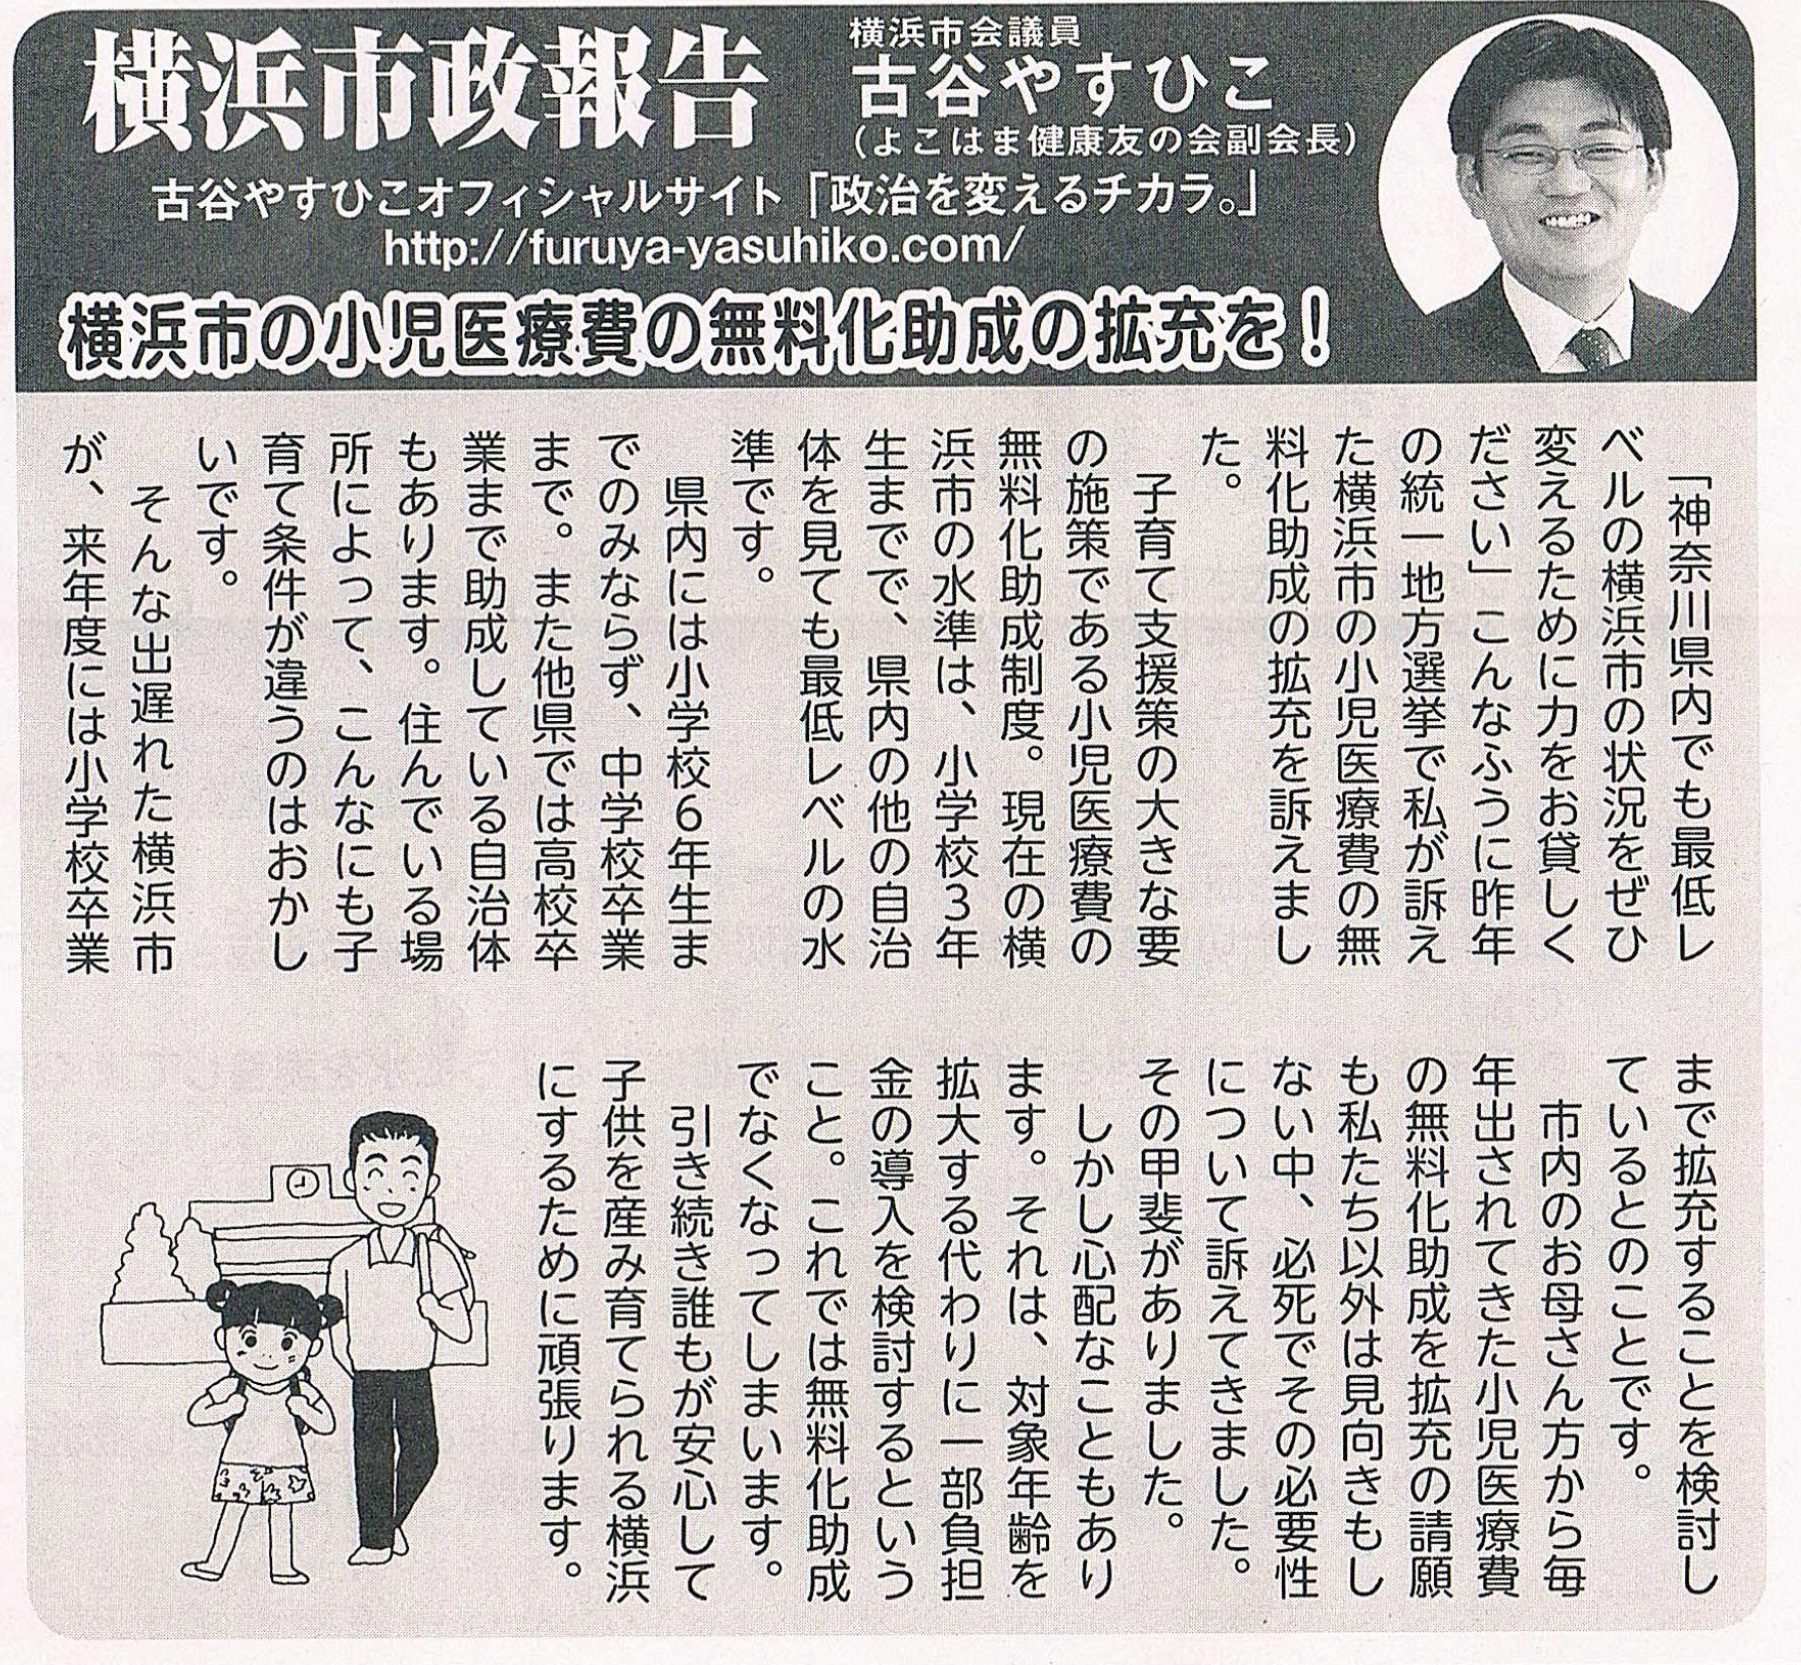 横浜市政報告
横浜市会議員
古谷やすひこ
（よこはま健康友の会副会長）
古谷やすひこオフィシャルサイト「政治を変えるチカラ。」
http://furuya-yasuhiko.com/
横浜市の小児医療費の無料化助成の拡充を！
「神奈川県内でも最低レ
ベルの横浜市の状況をぜひ
変えるために力をお貸しく
ださい」こんなふうに昨年
の統一地方選挙で私が訴え
た横浜市の小児医療費の無
料化助成の拡充を訴えまし
た。
子育て支援策の大きな要
の施策である小児医療費の
無料化助成制度。現在の横
浜市の水準は、小学校３年
生までで、県内の他の自治
体を見ても最低レベルの水
準です。
県内には小学校６年生ま
でのみならず、中学校卒業
まで。また他県では高校卒
業まで助成している自治体
もあります。住んでいる場
所によって、こんなにも子
育て条件が違うのはおかし
いです。
そんな出遅れた横浜市
が、来年度には小学校卒業
まで拡充することを検討し
ているとのことです。
市内のお母さん方から毎
年出されてきた小児医療費
の無料化助成を拡充の請願
も私たち以外は見向きもし
ない中、必死でその必要性
について訴えてきました。
その甲斐がありました。
しかし心配なこともあり
ます。それは、対象年齢を
拡大する代わりに一部負担
金の導入を検討するという
こと。これでは無料化助成
でなくなってしまいます。
引き続き誰もが安心して
子供を産み育てられる横浜
にするために頑張ります。